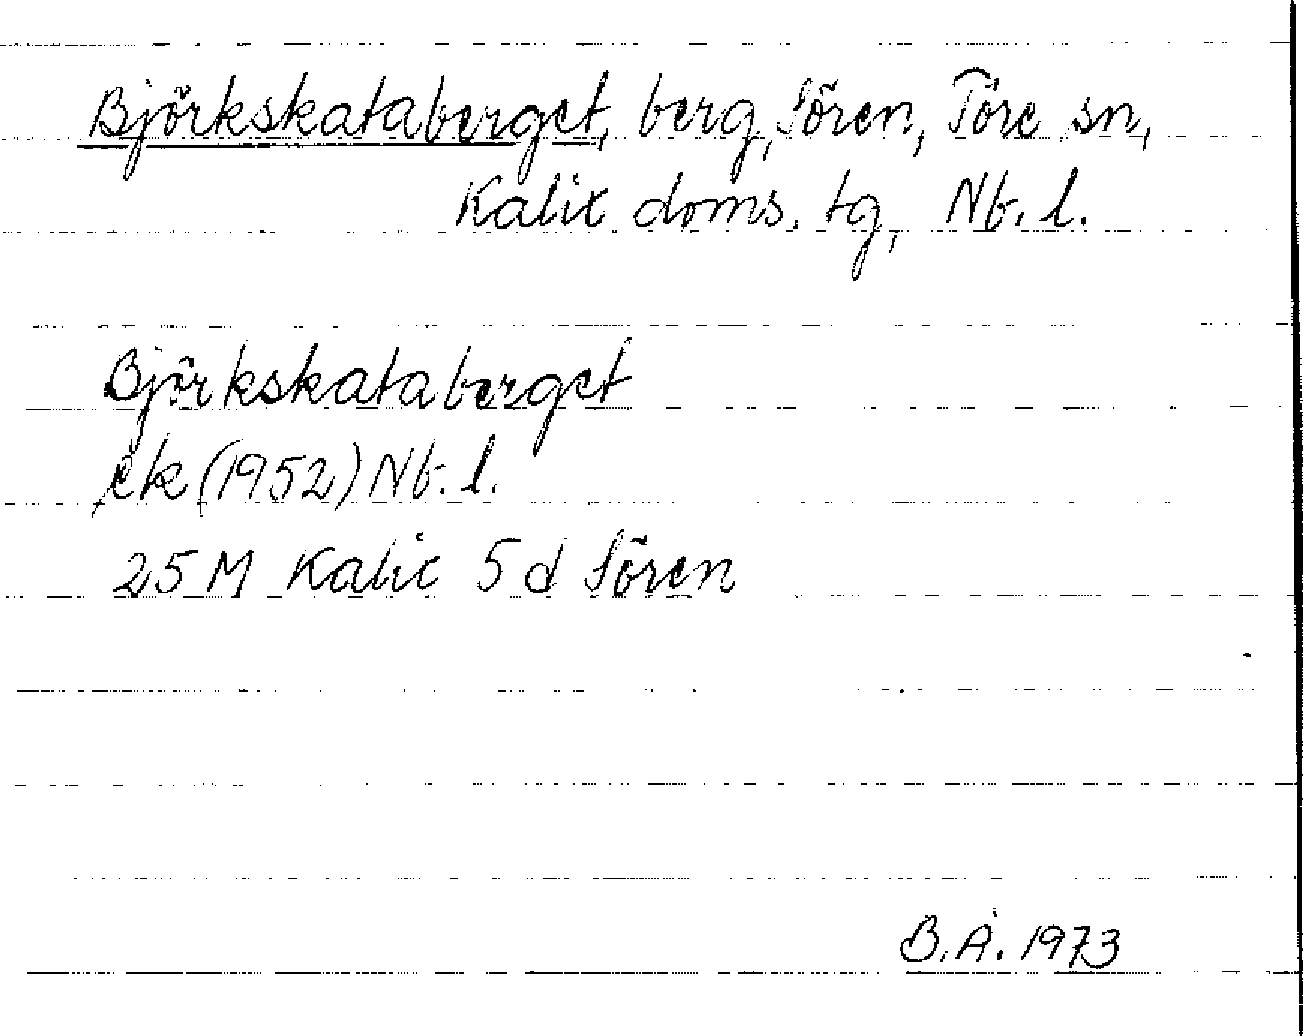 Björkskataberget, berg, Sören, Töre sn,
Kalix doms. tg, Nb. l.
Björkskataberget
ek (1952) Nb. l.
25 M Kalix 5 d Sören
B.Å. 1973